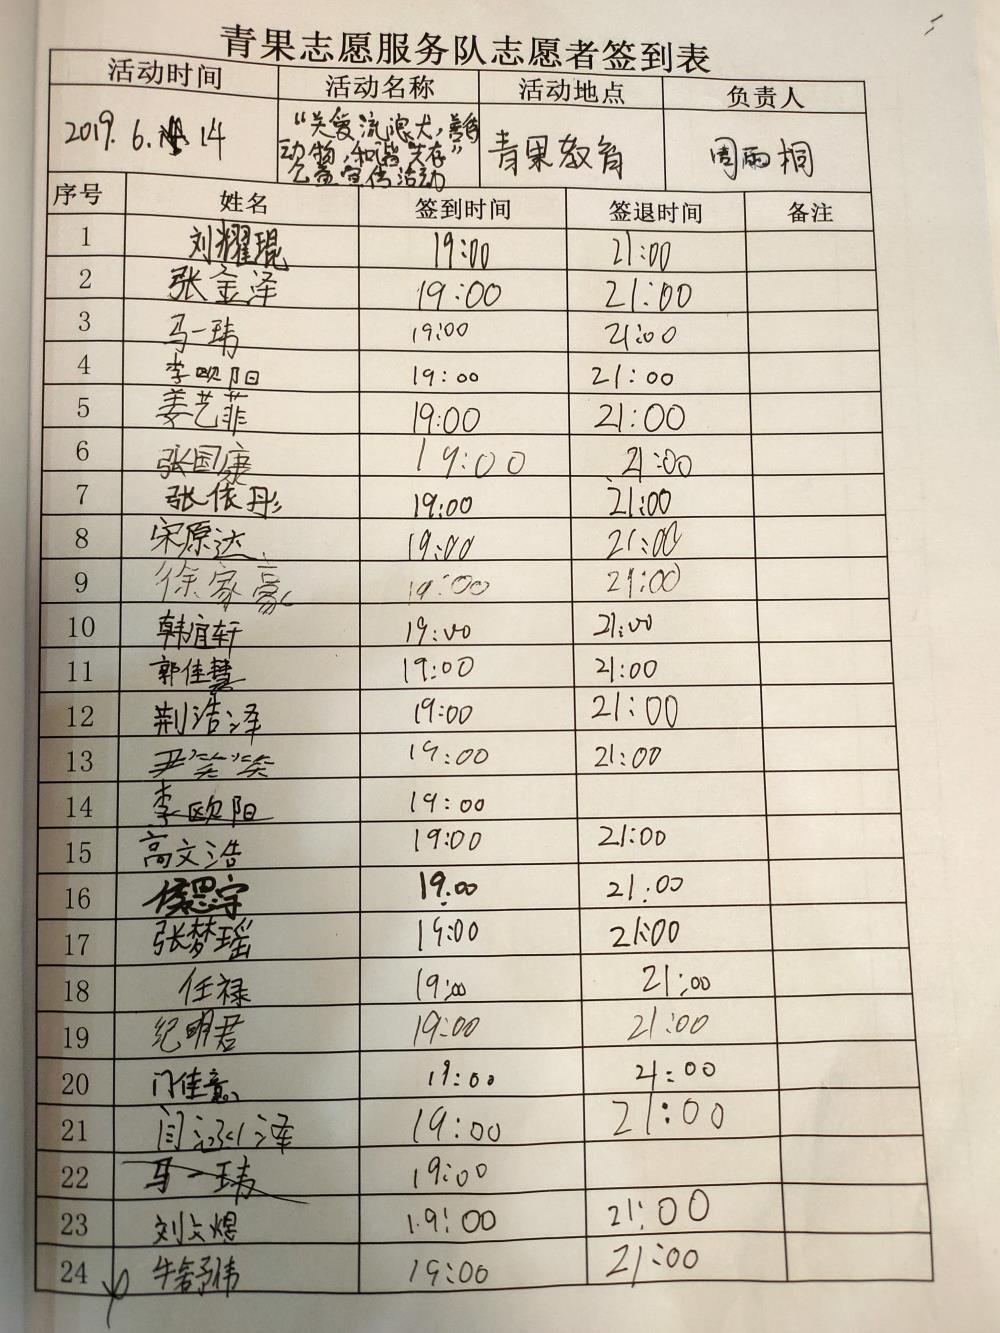 青果志愿服务队志愿者签到表
活动时间 活动名称 活动地点 负责人
2019.6. 14 "关爱流浪犬,善待动物,和谐共存"公益宣传活动 青果教育 周雨桐
序号 姓名 签到时间 签退时间 备注
1 刘耀琨 19:00 21:00
2 张金泽 19:00 21:00
3 马一玮 19:00 21:00
4 李欧阳 19:00 21:00
5 姜艺菲 19:00 21:00
6 张国康 19:00 21:00
7 张依彤 19:00 21:00
8 宋原达 19:00 21:00
9 徐家豪 19:00 21:00
10 韩宜轩 19:00 21:00
11 郭佳慧 19:00 21:00
12 荆浩泽 19:00 21:00
13 尹笑笑 19:00 21:00
14 李欧阳 19:00
15 高文浩 19:00 21:00
16 侯思宇 19.00 21:00
17 张梦瑶 19:00 21:00
18 任禄 19:00 21:00
19 纪明君 19:00 21:00
20 门佳意 19:00 21:00
21 闫 泽 19:00 21:00
22 马一玮 19:00
23 刘 煜 19:00 21:00
24 牛舒伟 19:00 21:00